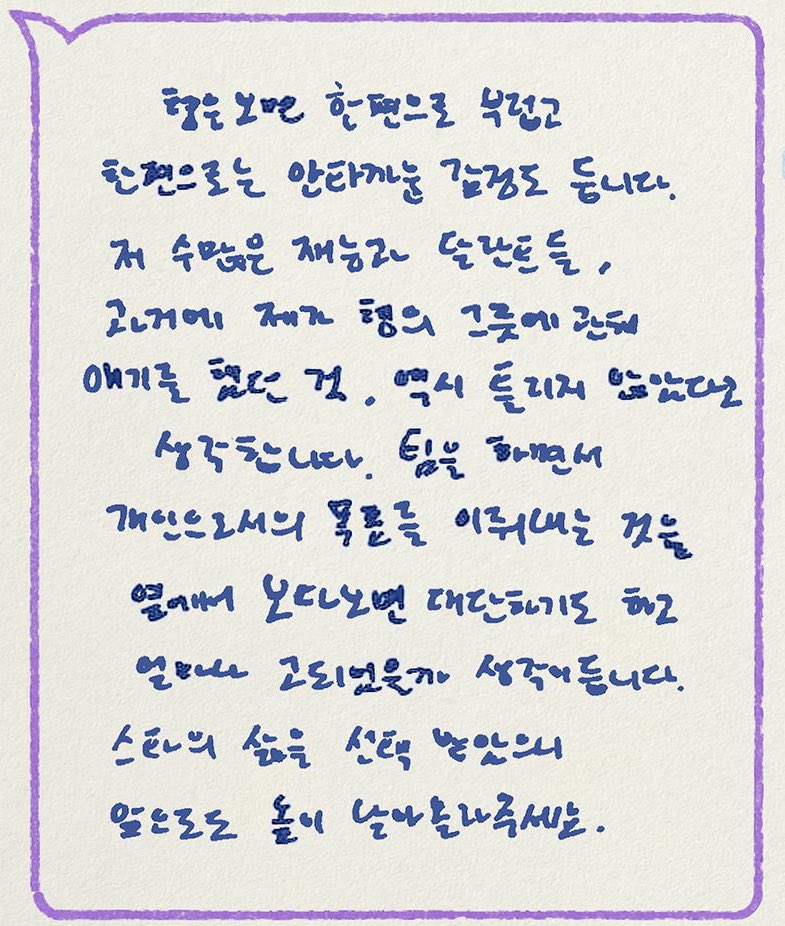 형은 보면 한편으로 부럽고
한편으로는 안타까운 감정도 듭니다.
저 수많은 재능과 달란트들,
과거에 제가 형의 그릇에 관해
얘기를 했던 것. 역시 틀리지 않았다고
생각합니다. 팀을 하면서
개인으로서의 목표를 이뤄내는 것을
옆에서 보다보면 대단하기도 하고
얼마나 고되었을까 생각이 듭니다.
스타의 삶을 선택 받았으니
앞으로도 높이 날아올라주세요.